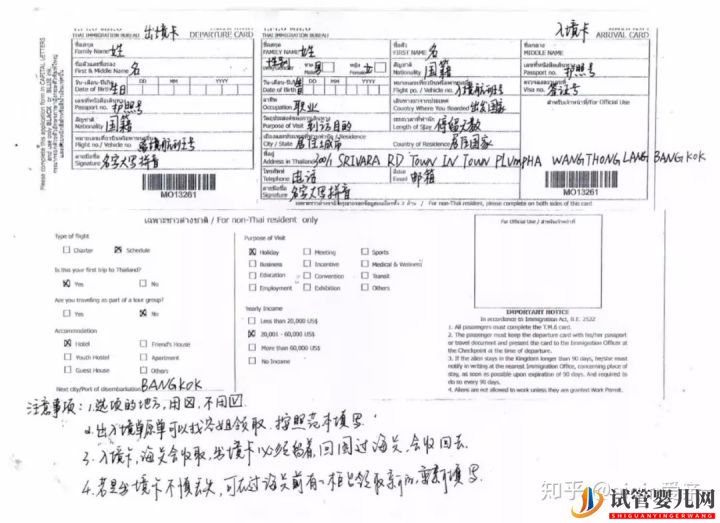 THAI IMMIGRATION BUREAU 出境卡 DEPARTURE CARD
ชื่อสกุล
Family Name 姓
ชื่อตัวและชื่อรอง
First & Middle Name 名
วัน-เดือน-ปีเกิด DD MM YYYY
Date of Birth 生日
เลขที่หนังสือเดินทาง
Passport no. 护照号
สัญชาติ
Nationality 国籍
Flight no./ Vehicle no.
ลายมือชื่อ
Signature 名字大写拼音
MO13261
Please complete this application form in CAPITAL LETTERS
and use only BLACK or BLUE ink.
THAI IMMIGRATION BUREAU 入境卡 ARRIVAL CARD
ชื่อสกุล ชื่อตัว ชื่อกลาง
FAMILY NAME 姓 FIRST NAME 名 MIDDLE NAME
性别 ชาย 男 หญิง 女 สัญชาติ Nationality 国籍 เลขที่หนังสือเดินทาง Passport no. 护照号
วัน-เดือน-ปีเกิด DD MM YYYY
Date of Birth 生日 Flight no./ Vehicle no. 入境航班号 Visa no. 签证号
อาชีพ
Occupation 职业 Country Where You Boarded 出发国家 สำหรับเจ้าหน้าที่/For Official Use
Purpose of Visit 到访目的 Length of Stay 停留天数
City / State 居住城市 Country of Residence 居住国家
ที่อยู่
Address in Thailand 300/1 SRIVARA RD TOWN IN TOWN PLVMPHA WANGTHONG LANG BANGKOK
โทรศัพท์ อีเมล
Telephone 电话 Email 邮箱
ลายมือชื่อ
Signature 名字大写拼音
MO13261
For non-Thai resident, please complete on both sides of this card
เฉพาะชาวต่างชาติ / For non-Thai resident only
Type of flight
Charter Schedule
Is this your first trip to Thailand?
Yes No
Are you traveling as part of a tour group?
Yes No
Accommodation
Hotel Friend's House
Youth Hostel Apartment
Guest House Others
Next city/Port of disembarkation BANGKOK
Purpose of Visit
Holiday Meeting Sports
Business Incentive Medical & Wellness
Education Convention Transit
Employment Exhibition Others
Yearly Income
Less than 20,000 US$
20,001 - 60,000 US$
More than 60,000 US$
No Income
For Official Use / สำหรับเจ้าหน้าที่
IMPORTANT NOTICE
In accordance to Immigration Act, B.E. 2522
1. All passengers must complete the T.M.6 card.
2. The passenger must keep the departure card with his/her passport
or travel document and present the card to the Immigration Officer at
the Checkpoint at the time of departure.
3. If the alien stays in the Kingdom longer than 90 days, he/she must
notify in writing at the nearest Immigration Office, concerning place of
stay, as soon as possible upon expiration of 90 days. And required to
do so every 90 days.
4. Aliens are not allowed to work unless they are granted Work Permit.
注意事项: 1. 选项的地方,用☒,不用☑.
2. 出入境草原单可以找空姐领取, 按照范本填写
3. 入境卡,海关会收取,出境卡必须留着,回国过海关,会收回去.
4. 若是出境卡不慎丢失,可在过海关前有柜台领取新的,重新填写.
知乎
试管婴儿网
SHIGUANYINGER.COM